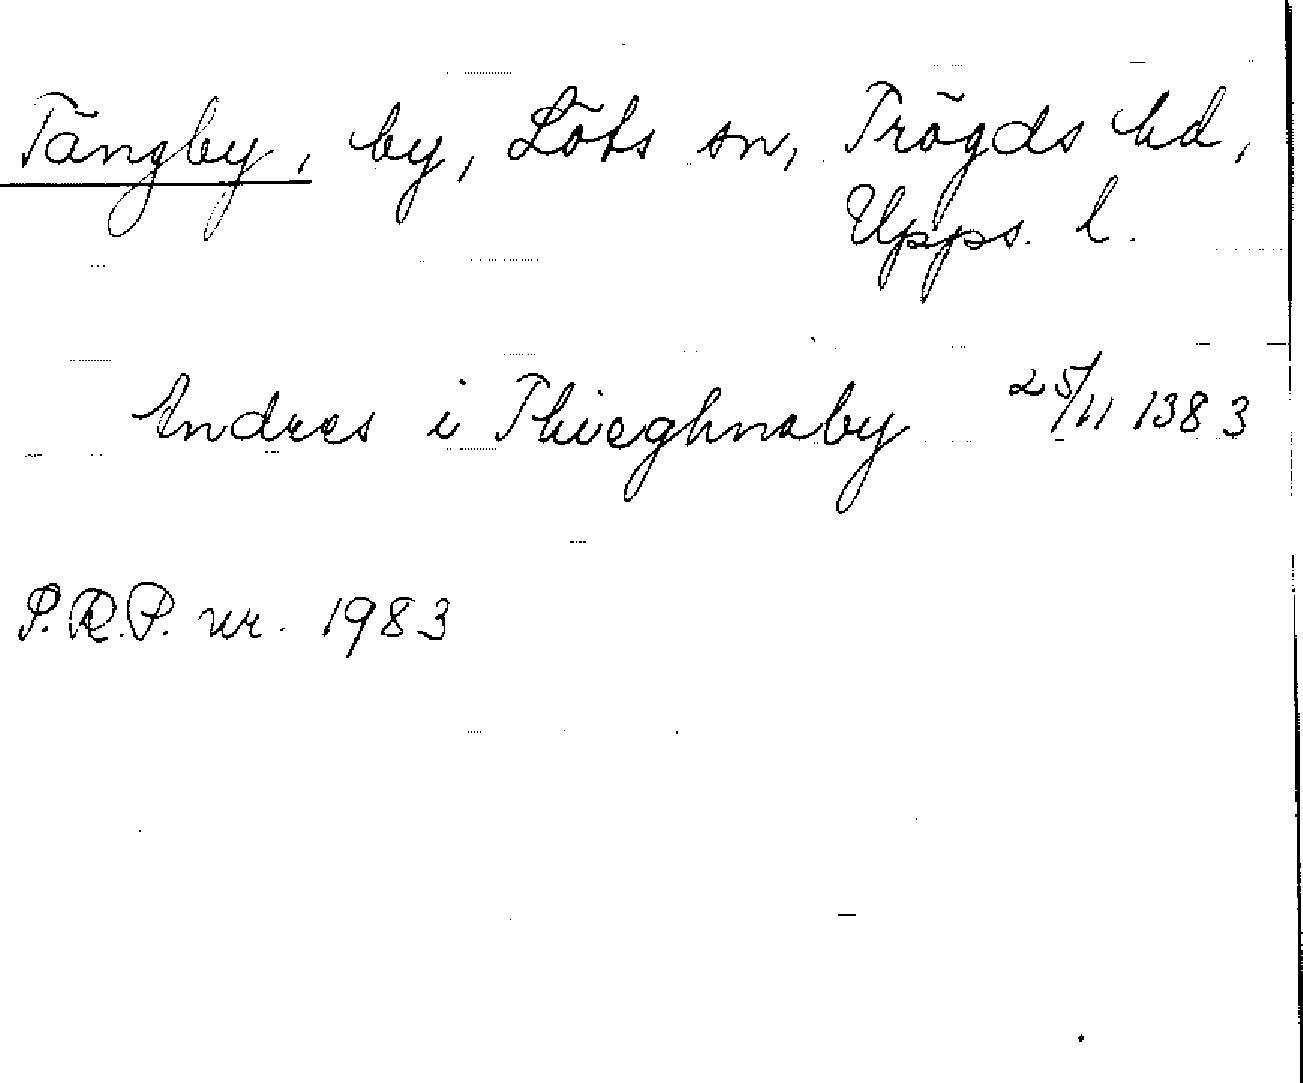 Tängby, by, Löts sn, Trögds hd,
Upps. l.
Andres i Thiæghnaby 25/11 1383
S.R.P. nr. 1983